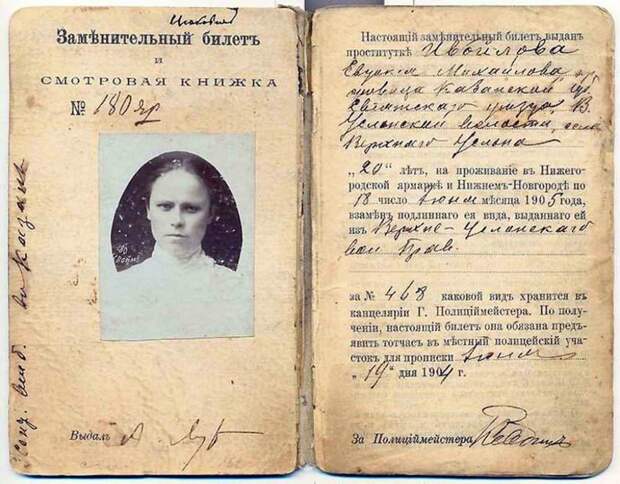 Замѣнительный билетъ
и
СМОТРОВАЯ КНИЖКА
№ 180 яр
Выдалъ
Настоящій замѣнительный билетъ выданъ
проституткѣ
Михайлова
Казанской
уѣзда
Услонской волости, села
Верхняго Услона
„20" лѣтъ, на проживаніе въ Нижего-
родской ярмаркѣ и Нижнемъ-Новгородѣ по
18 число Іюня мѣсяца 1905 года,
взамѣнъ подлиннаго ея вида, выданнаго ей
изъ Верхне-Услонскаго
вол Прав
за № 468 каковой видъ хранится въ
канцеляріи Г. Полиціймейстера. По полу-
ченіи, настоящій билетъ она обязана предъ-
явить тотчасъ въ мѣстный полицейскій уча-
стокъ для прописки Іюня
„19" дня 1904 г.
За Полиціймейстера